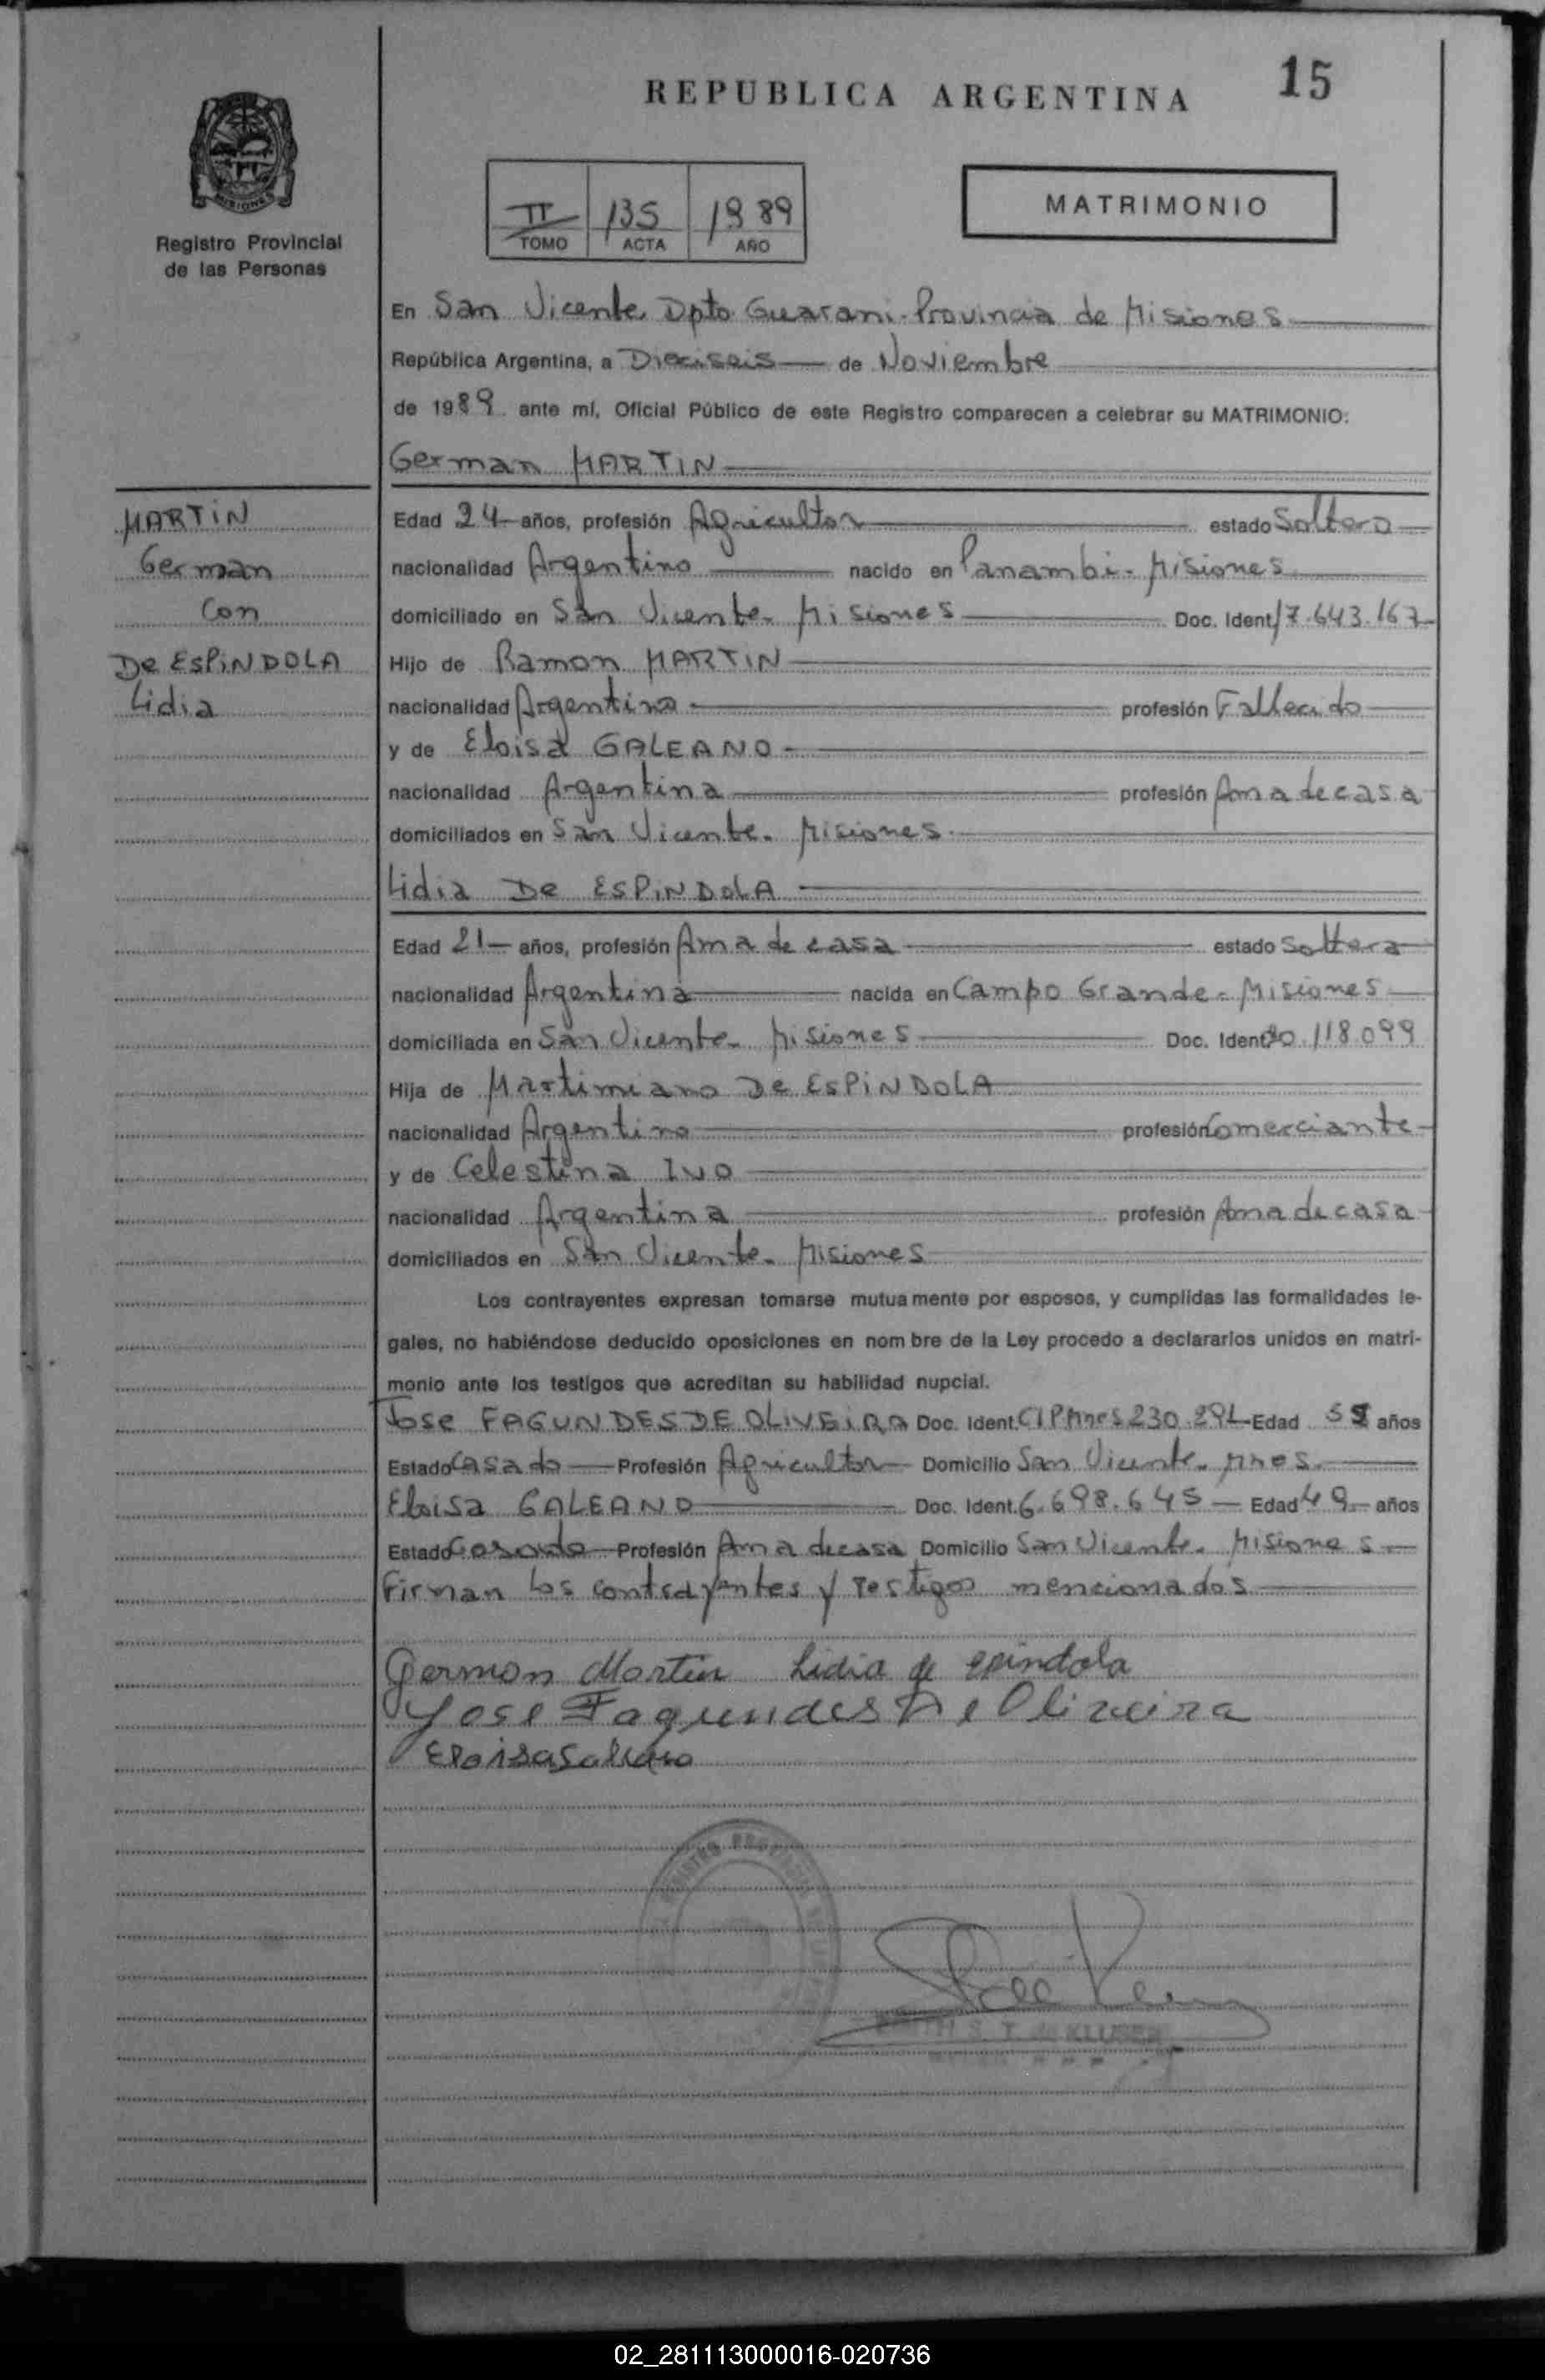 REPUBLICA ARGENTINA
15
MISIONES
Registro Provincial
de las Personas
II 135 1989
TOMO ACTA AÑO
MATRIMONIO
En San Vicente Dpto. Guarani - Provincia de Misiones
República Argentina, a Dieciseis de Noviembre
de 1989 ante mí, Oficial Público de este Registro comparecen a celebrar su MATRIMONIO:
German MARTIN
MARTIN
German
Con
De ESPINDOLA
Lidia
Edad 24 años, profesión Agricultor estado Soltero
nacionalidad Argentino nacido en Panambi - Misiones
domiciliado en San Vicente - Misiones Doc. Ident. 17.643.167
Hijo de Ramon MARTIN
nacionalidad Argentina profesión Fallecido
y de Eloisa GALEANO
nacionalidad Argentina profesión Ama de casa
domiciliados en San Vicente - Misiones
Lidia De ESPINDOLA
Edad 21 años, profesión Ama de casa estado Soltera
nacionalidad Argentina nacida en Campo Grande - Misiones
domiciliada en San Vicente - Misiones Doc. Ident. 20.118.099
Hija de Martimiano De ESPINDOLA
nacionalidad Argentino profesión Comerciante
y de Celestina IVO
nacionalidad Argentina profesión Ama de casa
domiciliados en San Vicente - Misiones
Los contrayentes expresan tomarse mutuamente por esposos, y cumplidas las formalidades le-
gales, no habiéndose deducido oposiciones en nombre de la Ley procedo a declararlos unidos en matri-
monio ante los testigos que acreditan su habilidad nupcial.
Jose FAGUNDES DE OLIVEIRA Doc. Ident. CIPMnes 230.291 Edad años
Estado Casado Profesión Agricultor Domicilio San Vicente - Mnes.
Eloisa GALEANO Doc. Ident. 6.698.645 Edad 49 años
Estado Casado Profesión Ama de casa Domicilio San Vicente - Misiones
Firman los contrayentes y Testigos mencionados
German Martin Lidia de Espindola
Jose Fagundes De Oliveira
Eloisa Galeano
02_281113000016-020736